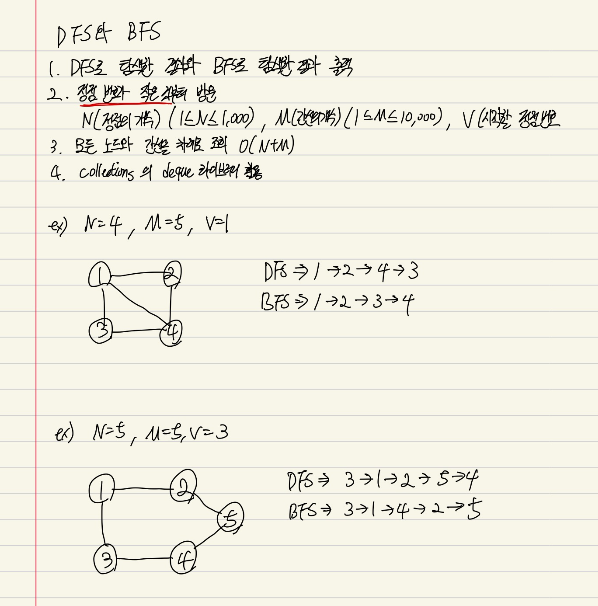 DFS와 BFS
1. DFS로 탐색한 결과와 BFS로 탐색한 결과 출력
2. 정점 번호가 작은 것부터 방문
N(정점의 개수) (1≤N≤1,000), M(간선의 개수) (1≤M≤10,000), V(시작할 정점 번호
3. 모든 노드와 간선을 차례로 조회 O(N+M)
4. collections 의 deque 라이브러리 활용
ex) N=4, M=5, V=1
1 2
DFS ⇒ 1 → 2 → 4 → 3
BFS ⇒ 1 → 2 → 3 → 4
3 4
ex) N=5, M=5, V=3
1 2
DFS ⇒ 3 → 1 → 2 → 5 → 4
BFS ⇒ 3 → 1 → 4 → 2 → 5
5
3 4